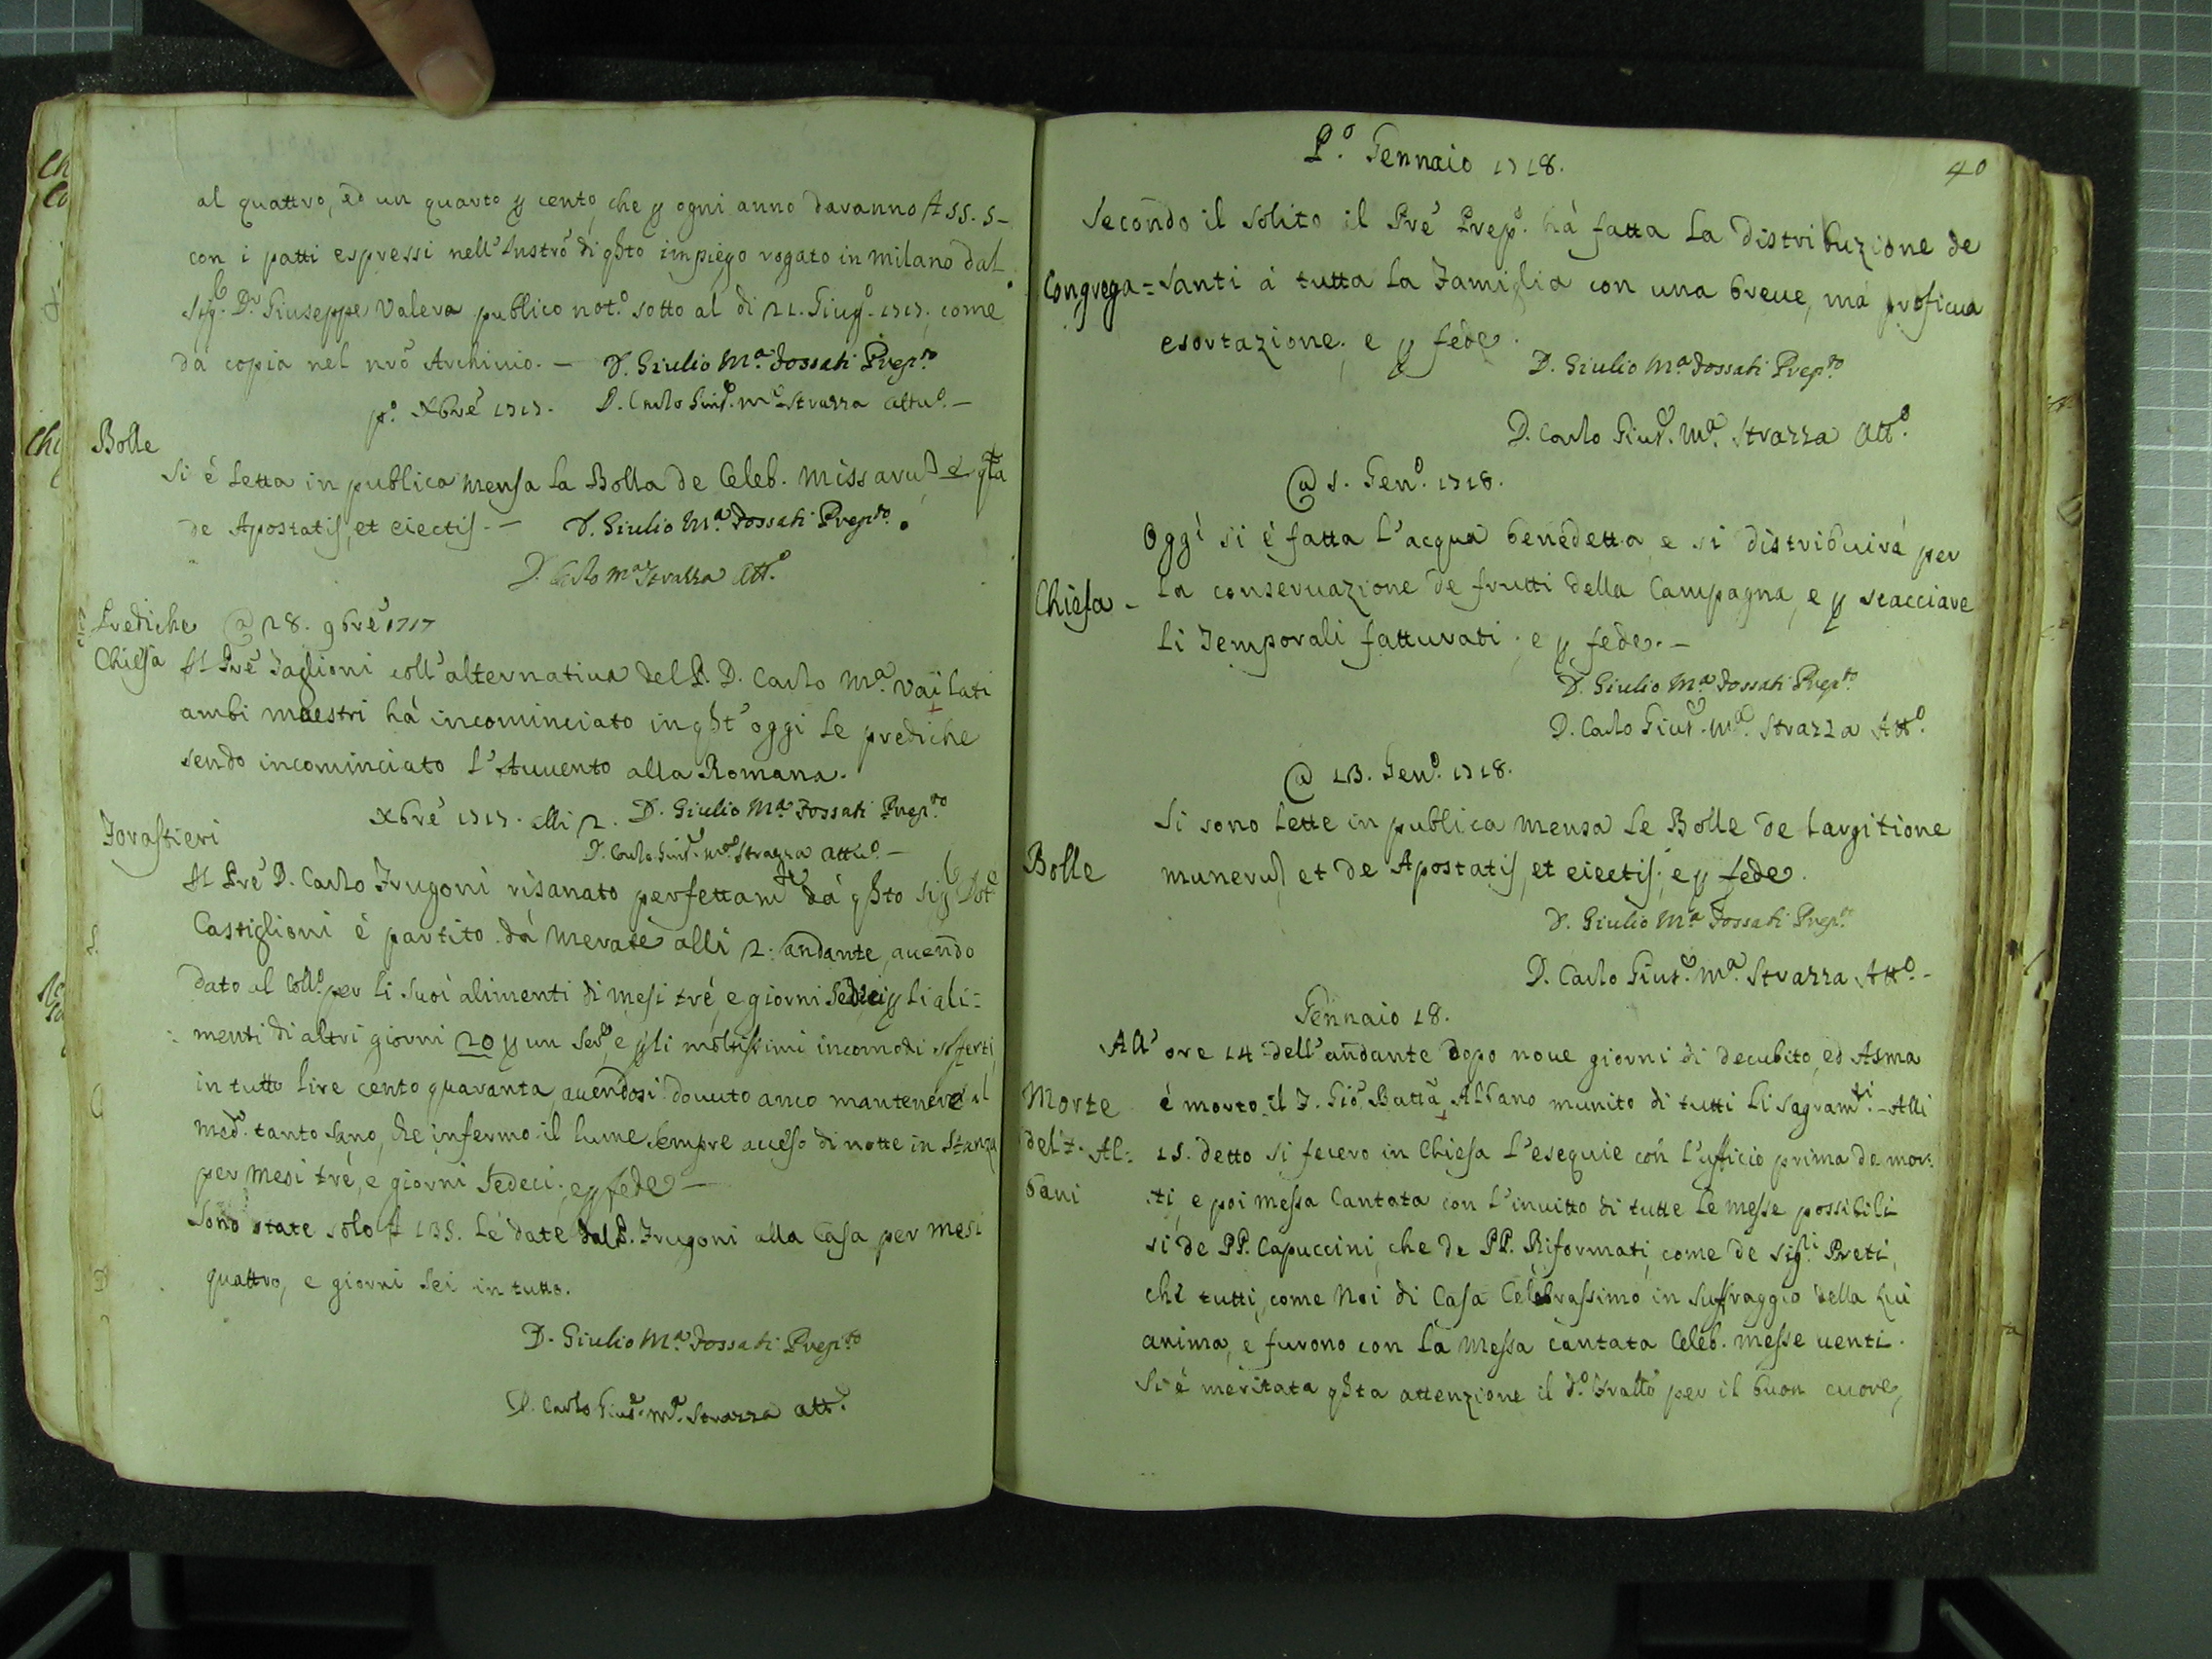 al quattro, ed un quarto p cento, che p ogni anno daranno £ 55. 5-
con i patti espressi nell'Instrõ di qsto impiego rogato in Milano dal
Sig.r D.r Giuseppe Valera publico not.o sotto al di 21. Giug.o 1717. come
da copia nel nrõ Archivio. — D. Giulio M.a Fossati Prep.to
p.o Xbre 1717. D. Carlo Gius.e M.a Strazza Attu.o —
Bolle
Si è letta in publica mensa la Bolla de Celeb. Missaru e qta
de Apostatis, et eiectis. — D. Giulio M.a Fossati Prep.to
D. Carlo M.a Strazza Att.o
Prediche @ 28. 9bre 1717
Chiesa Il Pre Taglioni coll'alternativa del P. D. Carlo M.a Vailati
ambi maestri hà incominciato in qst'oggi le prediche
sendo incominciato l'Avvento alla Romana.
Xbre 1717. alli 2. D. Giulio M.a Fossati Prep.to
Forastieri
D. Carlo Gius.e M.a Strazza Attu.o —
Il Pre D. Carlo Frugoni risanato perfettam.te dà qsto Sig.r Dot.e
Castiglioni è partito dà Merate alli 2. andante, avendo
dato al Coll.o per li suoi alimenti di mesi trè, e giorni Sedeci, p li ali=
menti di altri giorni 20 p un Ser.e, e p li moltissimi incomodi sofferti,
in tutto lire cento quaranta avendosi dovuto anco mantenere al
med.o tanto sano, che infermo il lume sempre acceso di notte in stanza
per mesi trè, e giorni Sedeci. e p fede —
Sono state solo £ 135. le date dal P. Frugoni alla Casa per mesi
quattro, e giorni sei in tutto.
D. Giulio M.a Fossati Prep.to
D. Carlo Gius.e M.a Strazza Att.o
40
P.o Gennaio 1718.
Secondo il solito il Pre Prep.o hà fatta la distribuzione de
Congrega= Santi à tutta la Famiglia con una breve, mà proficua
esortazione. e p fede.
D. Giulio M.a Fossati Prep.to
D. Carlo Gius.e M.a Strazza Att.o
@ 5. Gen.o 1718.
Oggi si è fatta l'acqua benedetta, e si distribuirà per
Chiesa - la conservazione de frutti della Campagna, e p scacciare
li Temporali fatturati. e p fede. —
D. Giulio M.a Fossati Prep.to
D. Carlo Gius.e M.a Strazza Att.o
@ 13. Gen.o 1718.
Si sono lette in publica mensa le Bolle de largitione
Bolle muneru, et de Apostatis, et eiectis; e p fede.
D. Giulio M.a Fossati Prep.to
D. Carlo Gius.e M.a Strazza Att.o -
Gennaio 18.
All' ore 14 dell'andante dopo nove giorni di decubito, ed Asma
Morte è morto il F. Gio. Batta Albano munito di tutti li Sagram.ti - Alli
del F. Al: 15. detto si fecero in Chiesa l'esequie con l'ufficio prima de mor:
bani ti, e poi messa Cantata con l'invitto di tutte le messe possibili
si de PP. Capuccini, che de PP. Riformati, come de Sig.ri Preti,
che tutti, come Noi di Casa Celebrassimo in suffraggio della Lui
anima, e furono con la Messa cantata Celeb. messe venti.
Si è meritata qsta attenzione il d.o Fratto per il buon cuore,